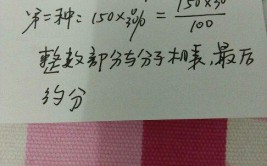 第二种：150×30% = 150×30/100
整数部分与分子相乘，最后
约分